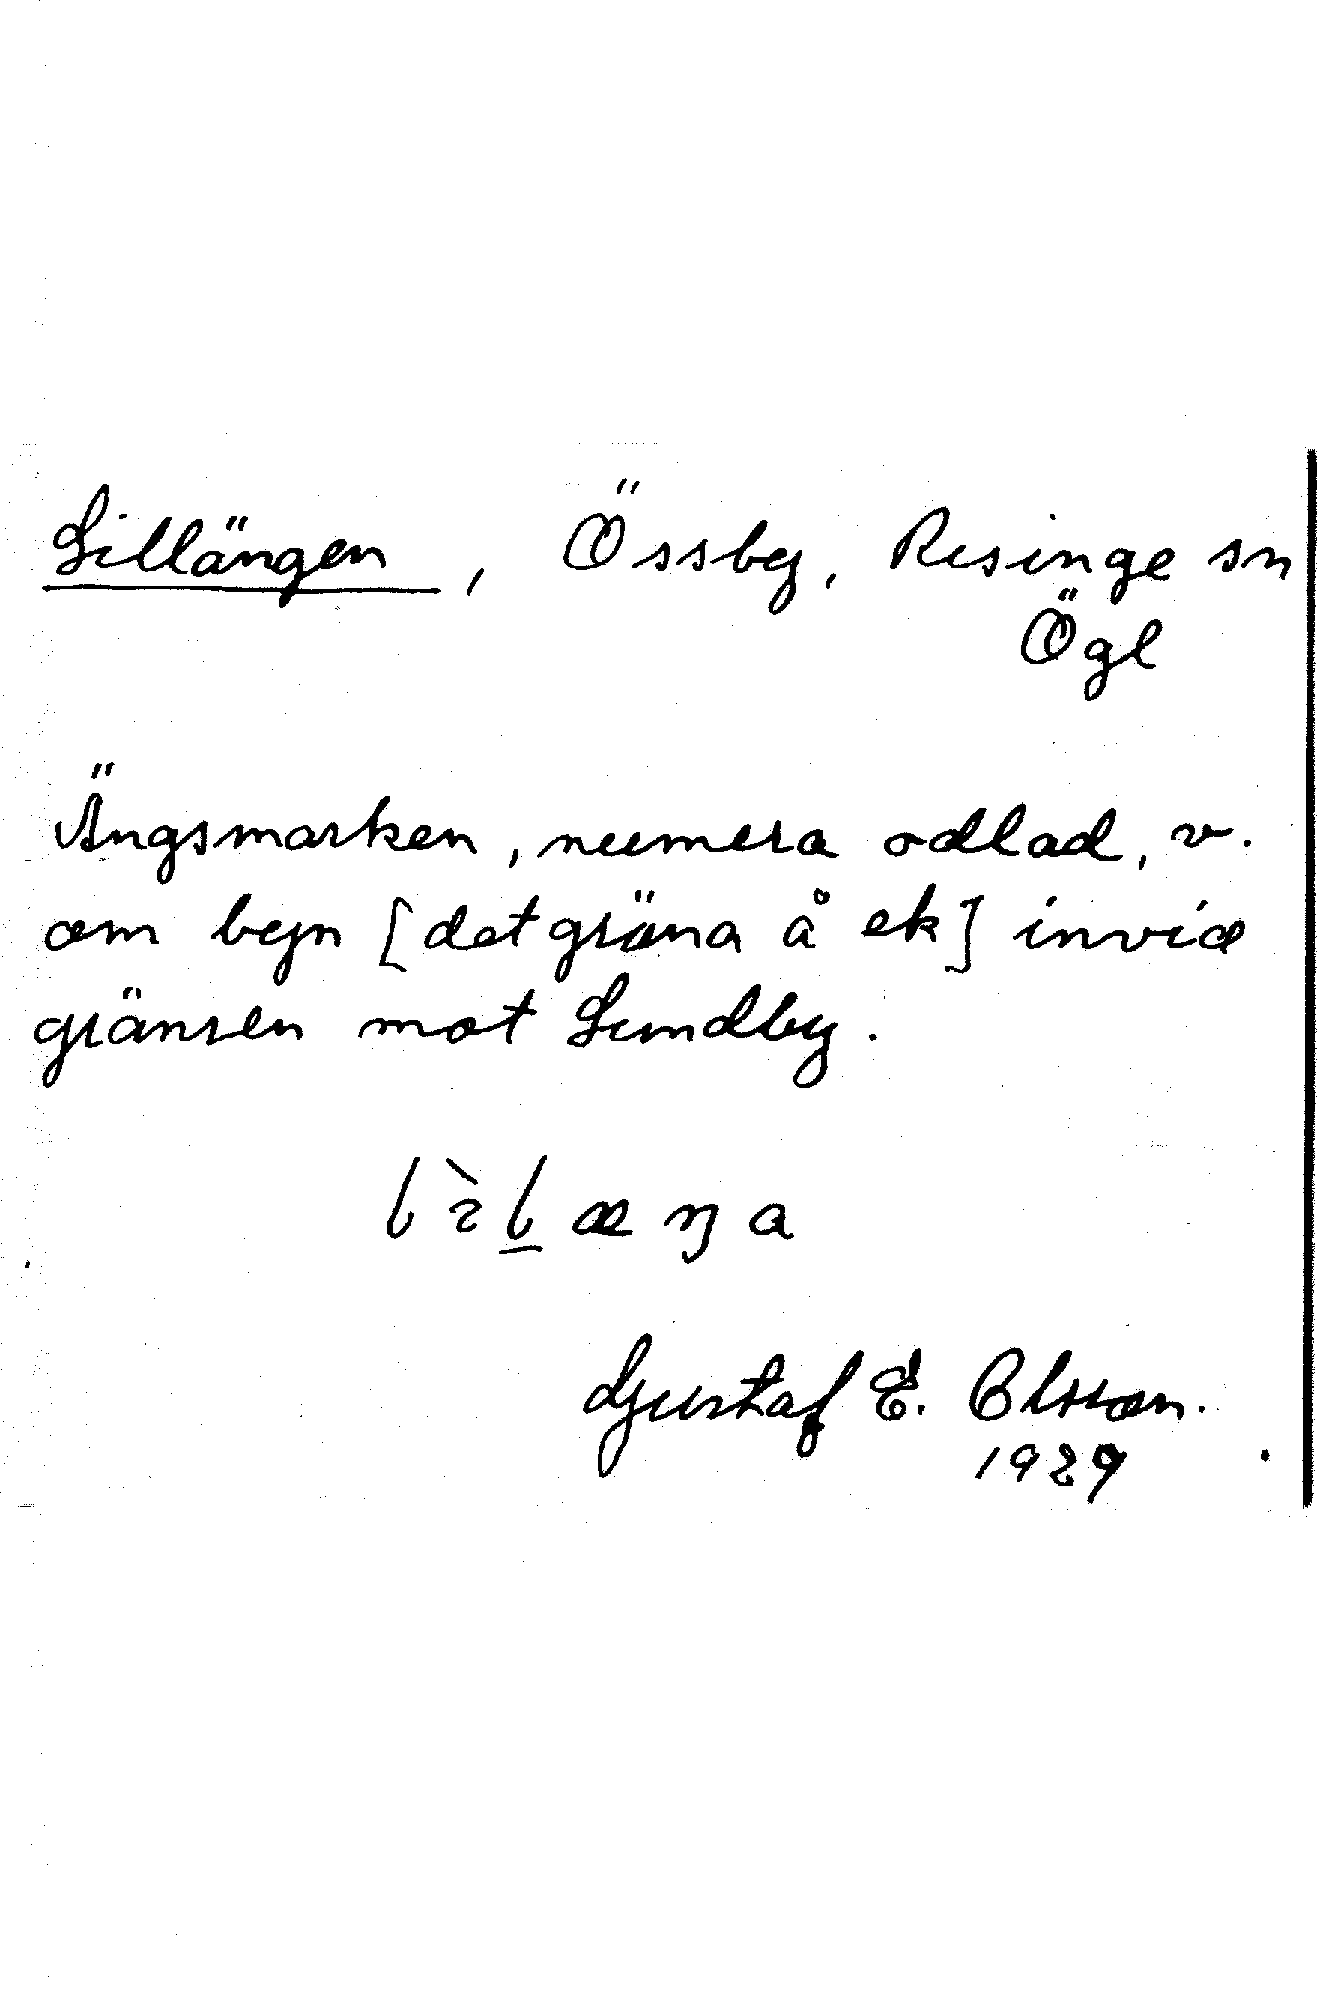 Lillängen, Össby, Risinge sn
Ögl
Ängsmarken, numera odlad, v.
om byn [det gröna å ek] invid
gränsen mot Lundby.
lìl̲æŋa
Gustaf E. Olsson.
1929